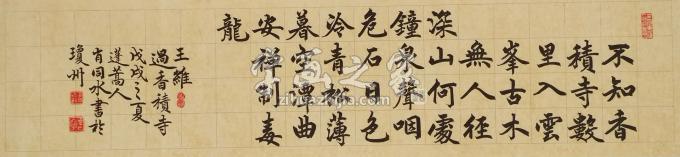 不知香
積寺數
里入雲
峯古木
無人徑
深山何處
鐘泉聲咽
危石日色
冷青松薄
暮空潭曲
安禪制毒
龍
王維
過香積寺
戊戌之夏
蓬蒿人
肖同水書於
瓊州